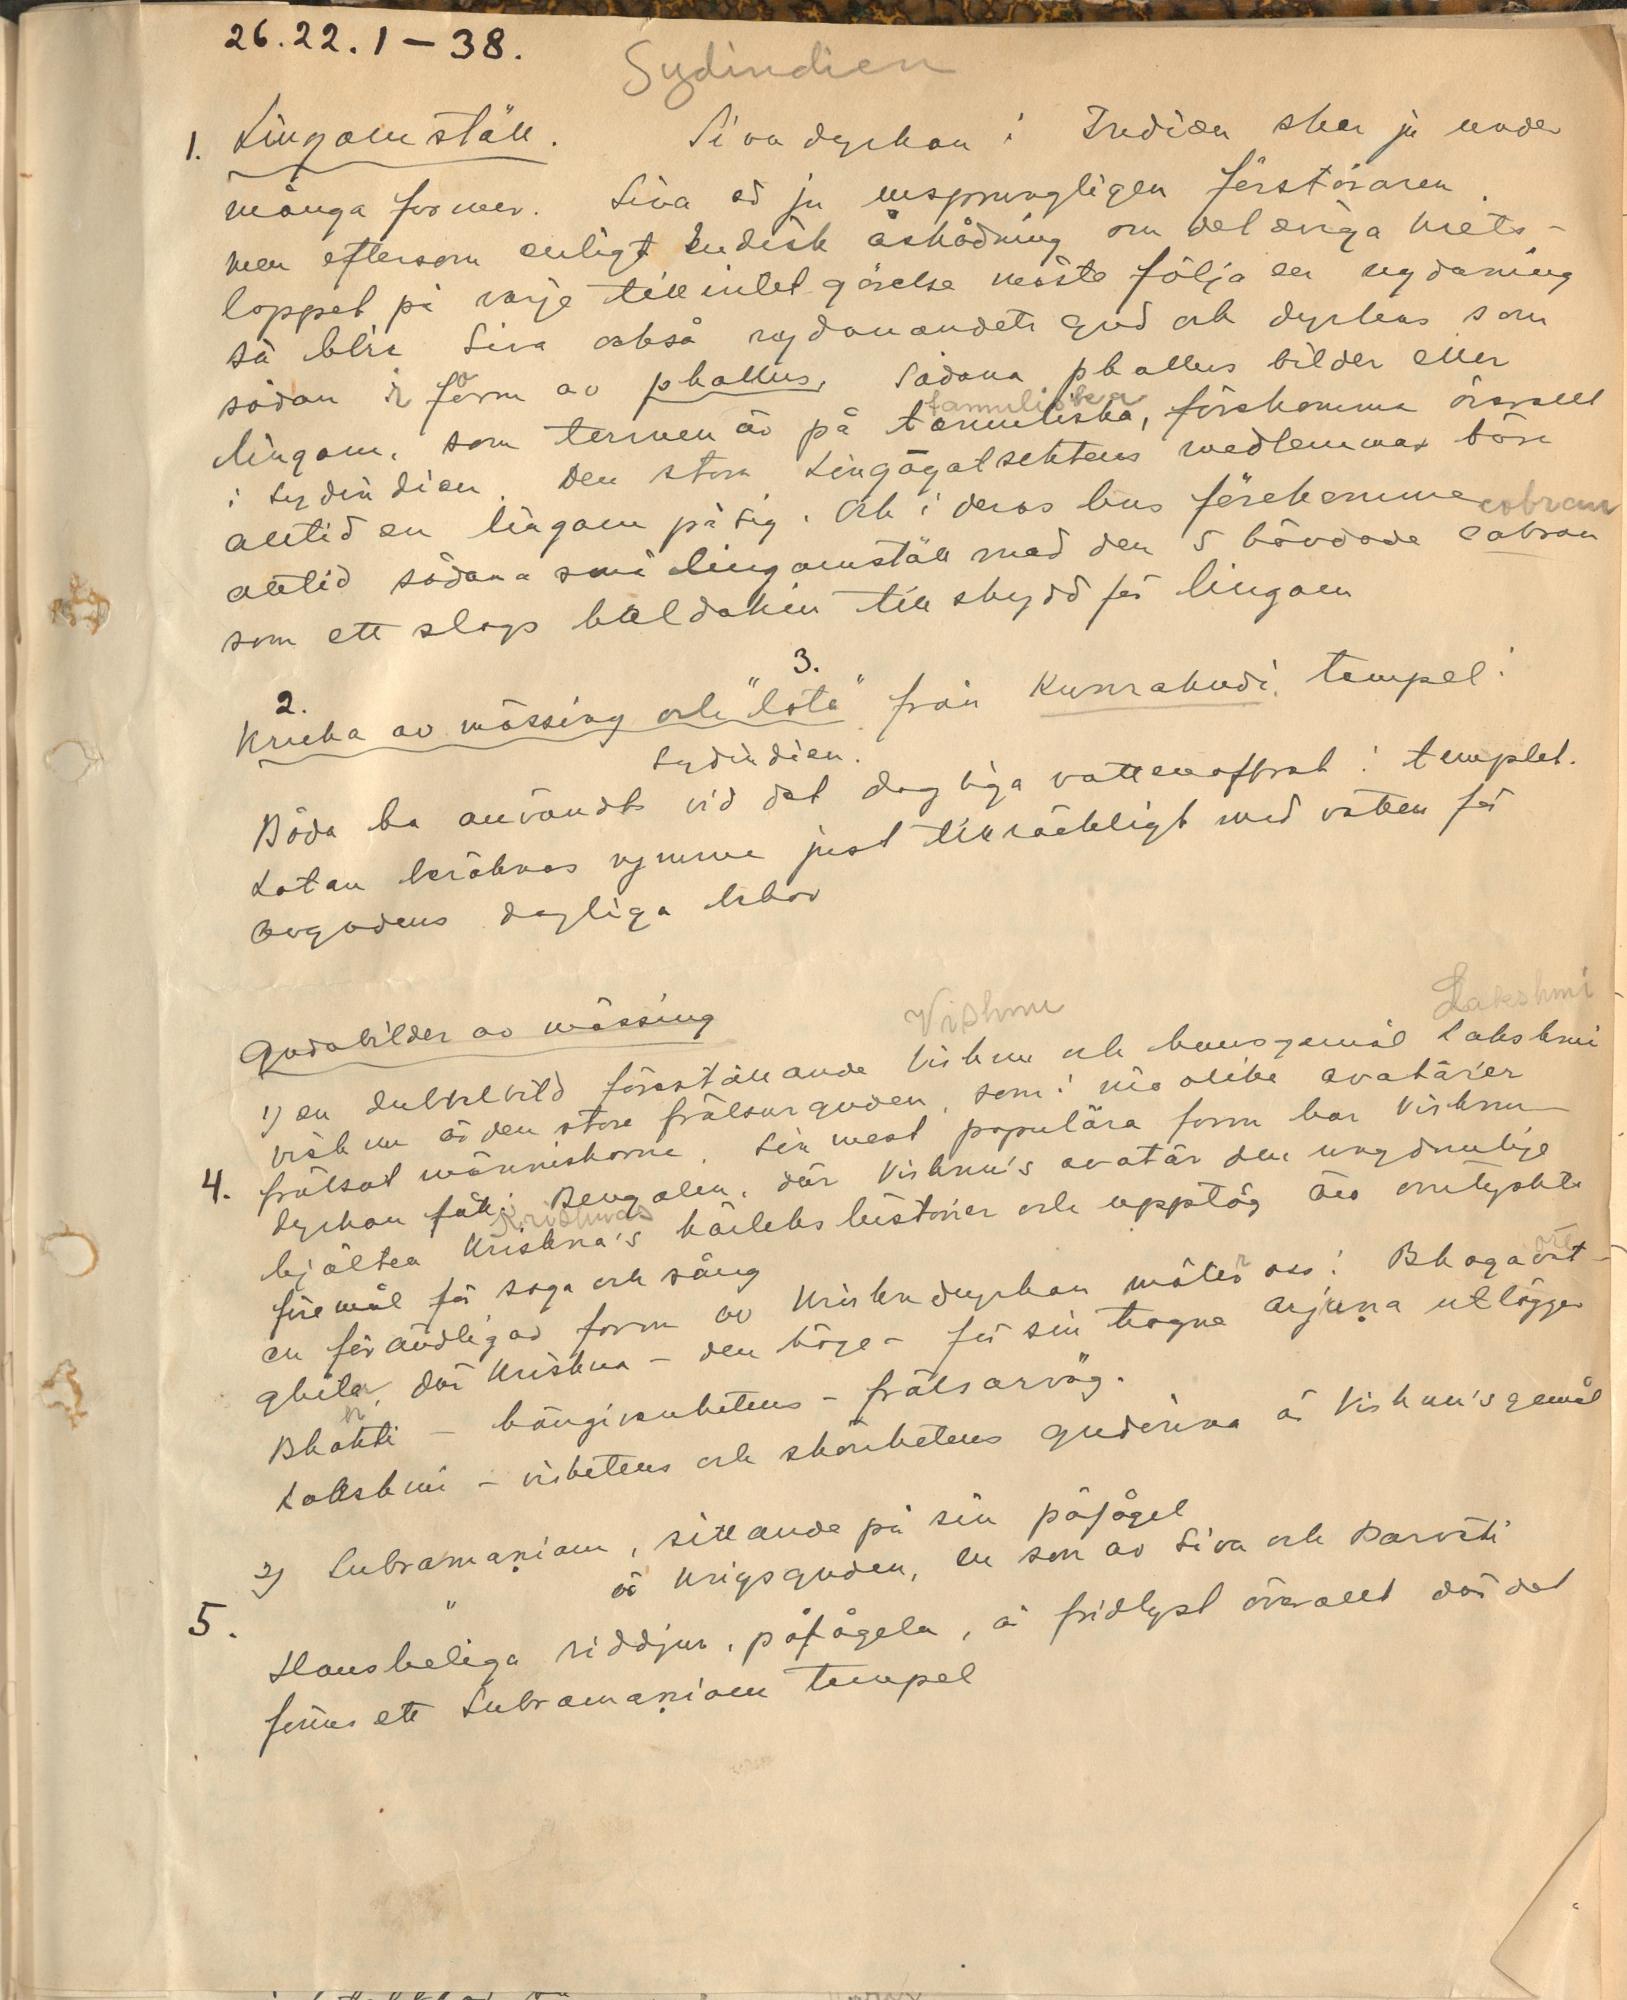 26.22.1 – 38.
Sydindien
1. Lingamställ. Sivadyrkan i Indien sker ju under
många former. Siva är ju ursprungligen förstöraren,
men eftersom enligt Indisk åskådning om det eviga krets-
loppet på varje tillintetgörelse måste följa en nydaning
så blir Siva också nydanandets gud och dyrkas som
sådan i form av phallus. Sådana phallus bilder eller
tamuliska
lingam, som termen är på tamuliska, förekomma överallt
i Sydindien. Den stora Lingāgatsektens medlemmar bära
alltid en lingam på sig. Och i deras hus förekomma cobran
alltid sådana små lingamställ med den 5 hövdade cobran
som ett slags baldakin till skydd för lingam
2. 3.
Kruka av mässing och "lota" från Kunrakudi tempel i
Sydindien.
Båda ha använts vid det dagliga vattenoffret i templet.
Lotan beräknas rymma just tillräckligt med vatten för
avgudens dagliga behov
Gudabilder av mässing
Vishnu Lakshmi
1) en dubbelbild föreställande Vishnu och hans gemål Lakshmi
Vishnu är den store frälsarguden, som i nio olika avatārer
4. frälsat människorna. Sin mest populära form har Vishnu-
dyrkan fått i Bengalen, där Vishnu's avatār den ungdomlige
Krishnas
hjälten Krishna's kärlekshistorier och upptåg äro omtyckta
föremål för saga och sång
en förandligad form av Krishnadyrkan möter oss i Bhagavat-
ghita, där Krishna – den höge – för sin trogne Arjuṇa utlägger
Bhakti – hängivenhetens – frälsarväg.
Lakshmi – vishetens och skönhetens gudinna är Vishnu's gemål
2) Subramaṇiam, sittande på sin påfågel
5. " är krigsguden, en son av Siva och Parvati
Hans heliga riddjur, påfågeln, är fridlyst överallt där det
finns ett Subramaṇiam tempel